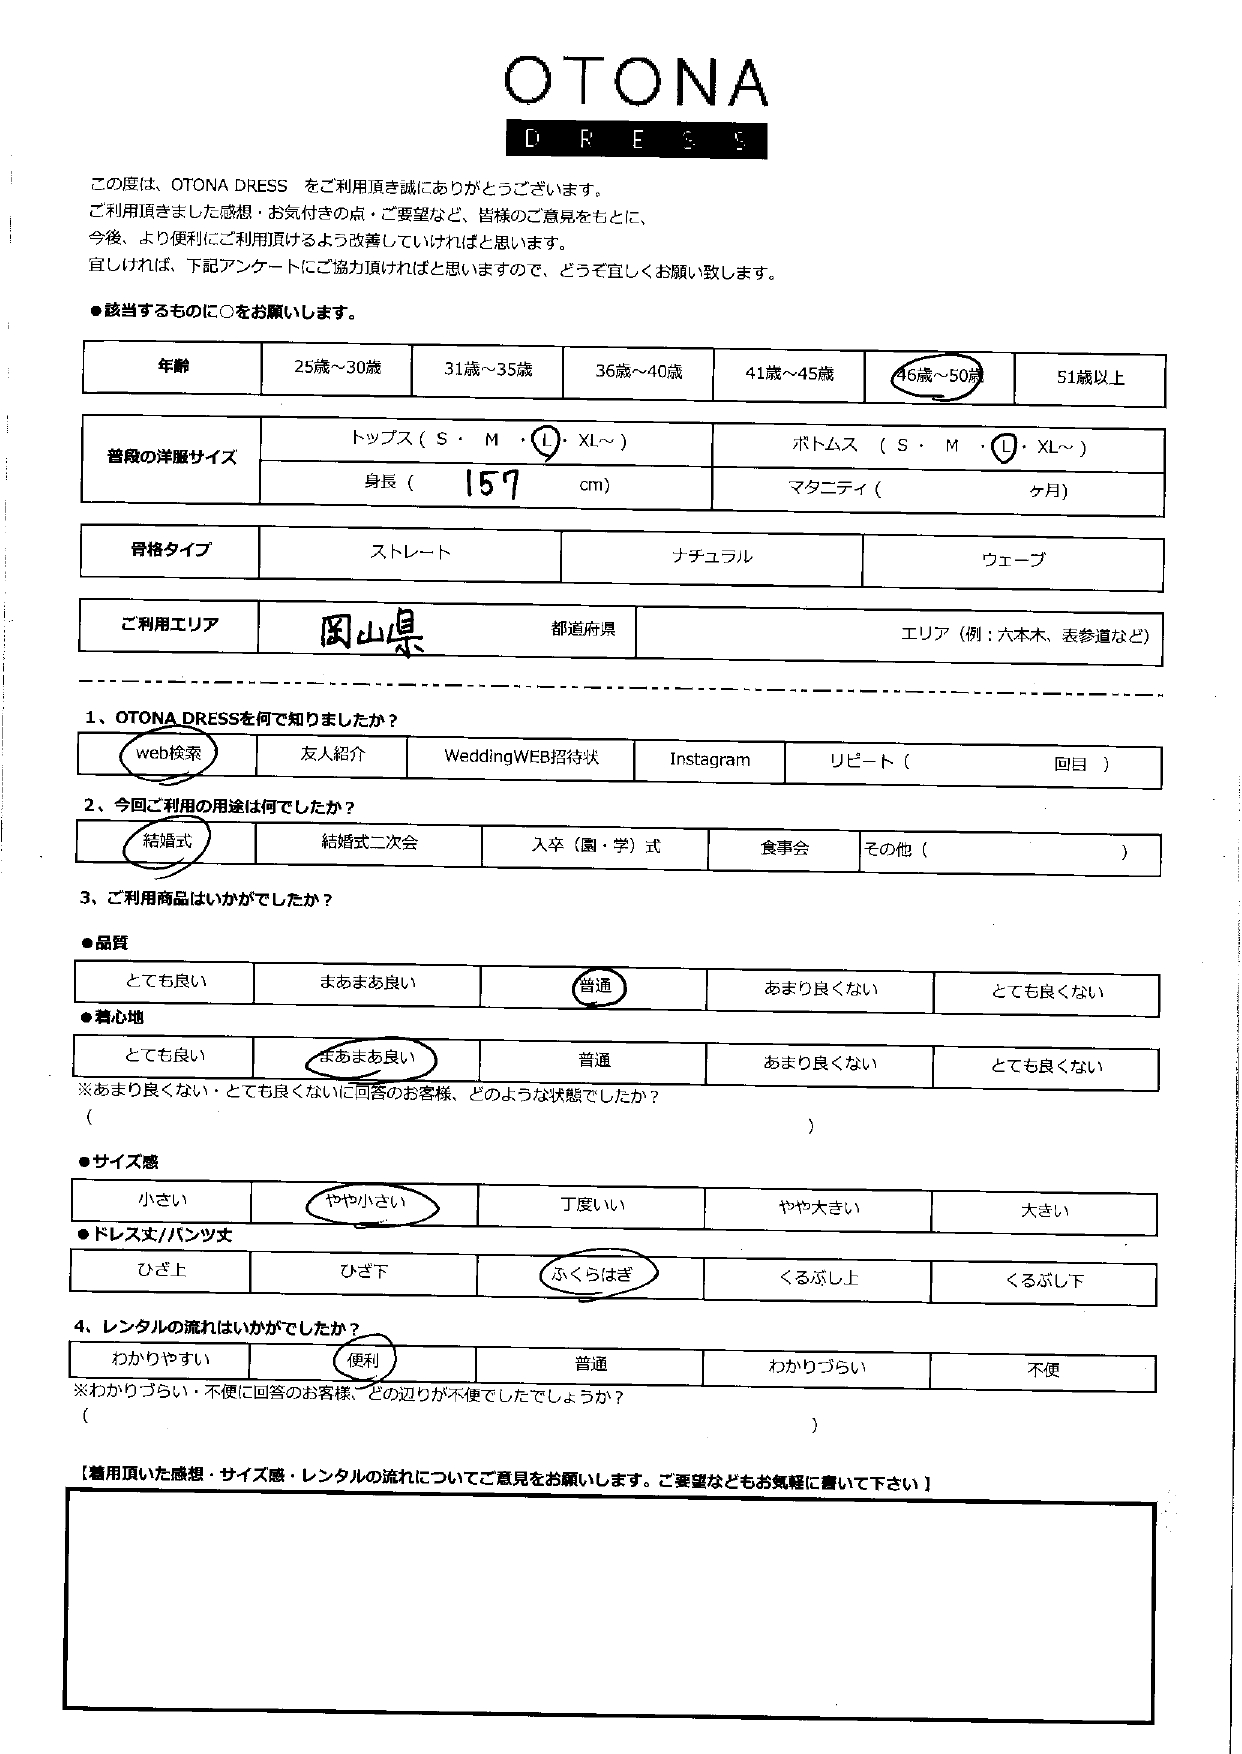 OTONA
DRESS
この度は、OTONA DRESS　をご利用頂き誠にありがとうございます。
ご利用頂きました感想・お気付きの点・ご要望など、皆様のご意見をもとに、
今後、より便利にご利用頂けるよう改善していければと思います。
宜しければ、下記アンケートにご協力頂ければと思いますので、どうぞ宜しくお願い致します。
●該当するものに○をお願いします。
年齢 25歳～30歳 31歳～35歳 36歳～40歳 41歳～45歳 46歳～50歳 51歳以上
普段の洋服サイズ トップス ( S ・ M ・ L ・ XL～ ) ボトムス ( S ・ M ・ L ・ XL～ )
身長 ( 157 cm) マタニティ ( ヶ月)
骨格タイプ ストレート ナチュラル ウェーブ
ご利用エリア 岡山県 都道府県 エリア（例：六本木、表参道など）
1、OTONA DRESSを何で知りましたか？
web検索 友人紹介 WeddingWEB招待状 Instagram リピート ( 回目 )
2、今回ご利用の用途は何でしたか？
結婚式 結婚式二次会 入卒（園・学）式 食事会 その他 ( )
3、ご利用商品はいかがでしたか？
●品質
とても良い まあまあ良い 普通 あまり良くない とても良くない
●着心地
とても良い まあまあ良い 普通 あまり良くない とても良くない
※あまり良くない・とても良くないに回答のお客様、どのような状態でしたか？
( )
●サイズ感
小さい やや小さい 丁度いい やや大きい 大きい
●ドレス丈/パンツ丈
ひざ上 ひざ下 ふくらはぎ くるぶし上 くるぶし下
4、レンタルの流れはいかがでしたか？
わかりやすい 便利 普通 わかりづらい 不便
※わかりづらい・不便に回答のお客様、どの辺りが不便でしたでしょうか？
( )
【着用頂いた感想・サイズ感・レンタルの流れについてご意見をお願いします。ご要望などもお気軽に書いて下さい】